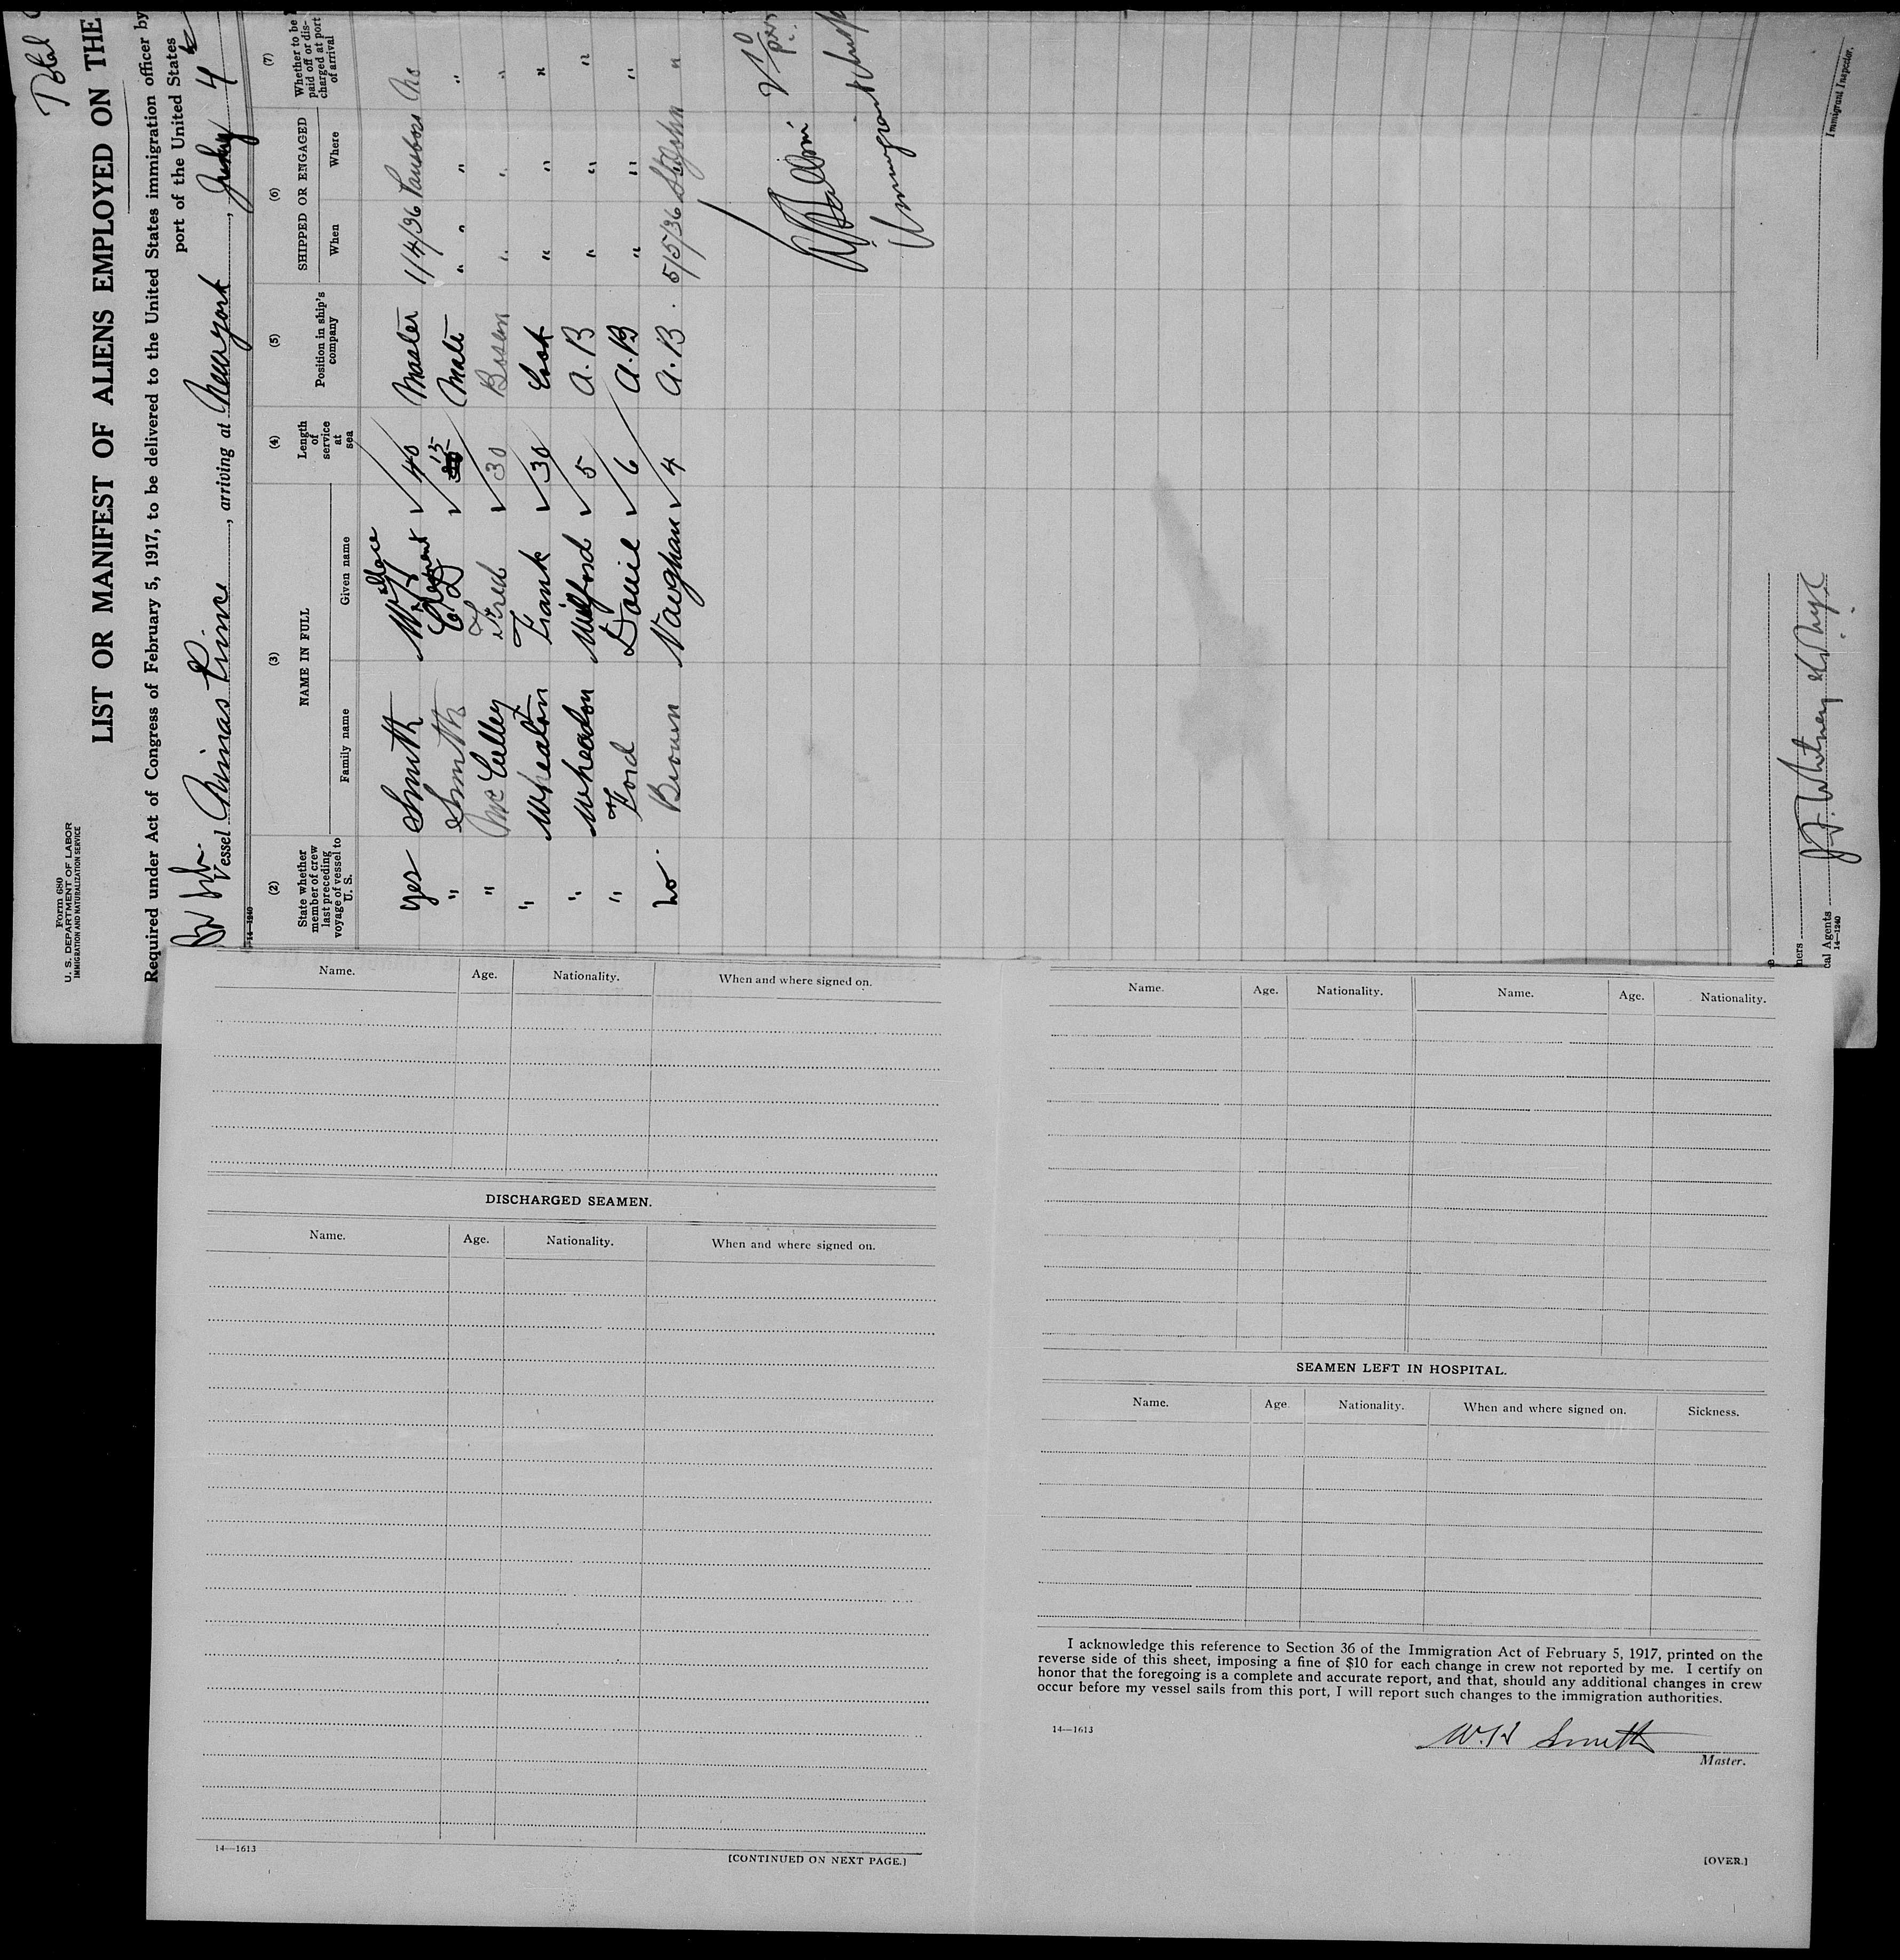 Total
Form 680
U. S. DEPARTMENT OF LABOR
IMMIGRATION AND NATURALIZATION SERVICE
LIST OR MANIFEST OF ALIENS EMPLOYED ON THE
Required under Act of Congress of February 5, 1917, to be delivered to the United States immigration officer by
port of the United States
Vessel Minas Prince, arriving at New york, July 4
14—1240
(2) (3) (4) (5) (6) (7)
State whether member of crew last preceding voyage of vessel to U. S. NAME IN FULL Length of service at sea Position in ship's company SHIPPED OR ENGAGED Whether to be paid off or discharged at port of arrival
Family name Given name When Where
yes Smith Wallace 40 Master 1/4/36 Parrsboro No
" Smith Clement 15 Mate " " " "
" Mc Culley Fred 30 Bosun " " "
" Wheaton Frank 30 Cook " " "
" Wheadon Milford 5 A. B " " "
" Ford Douie 6 A. B " " "
no. Brown Vaughan 4 A. B. 5/5/36 St John "
Immigrant Insp
Immigrant Inspector.
ners
cal Agents
14—1240
J. F. Whitney
Name. Age. Nationality. When and where signed on.
DISCHARGED SEAMEN.
Name. Age. Nationality. When and where signed on.
14—1613
[CONTINUED ON NEXT PAGE.]
Name. Age. Nationality. Name. Age. Nationality.
SEAMEN LEFT IN HOSPITAL.
Name. Age. Nationality. When and where signed on. Sickness.
I acknowledge this reference to Section 36 of the Immigration Act of February 5, 1917, printed on the
reverse side of this sheet, imposing a fine of $10 for each change in crew not reported by me. I certify on
honor that the foregoing is a complete and accurate report, and that, should any additional changes in crew
occur before my vessel sails from this port, I will report such changes to the immigration authorities.
14—1613
W. H Smith
Master.
[OVER.]